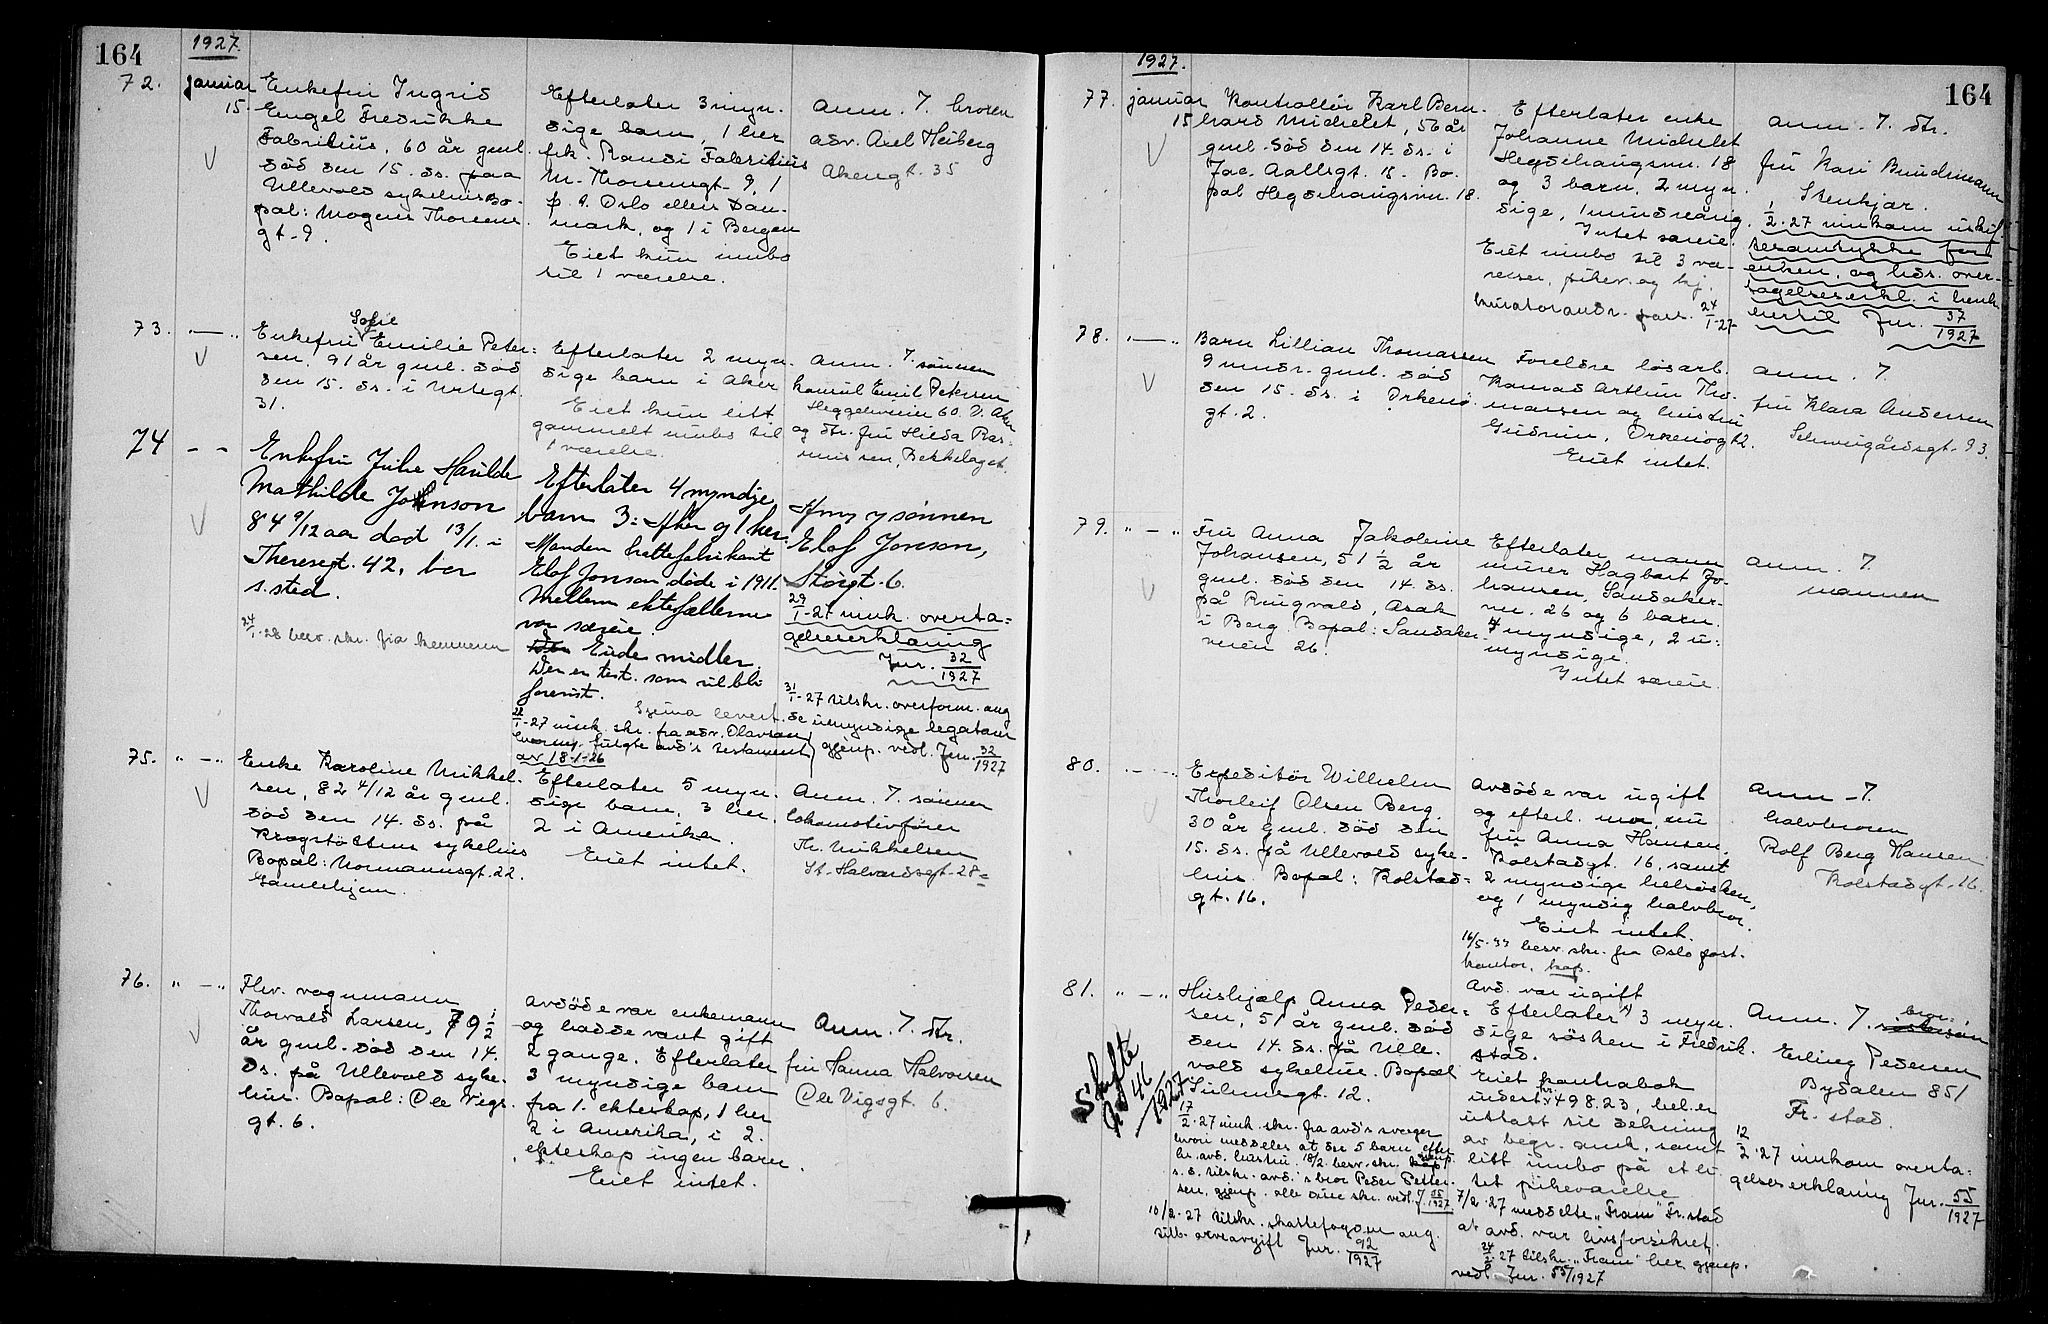 164
1927.
72.
januar
15.
Enkefru Ingrid
Engel Fredrikke
Fabritius, 60 år gml.
död den 15. ds. paa
Ullevold sykehus Bo-
pæl: Mogens Thorsens
gt. 9.
Efterlater 3 myn-
dige barn, 1 her
frk. Randi Fabritius
M. Thorsensgt. 9, 1
p. t. Oslo ellers Dan-
mark, og 1 i Bergen
Eiet kun innbo
til 1 værelse.
Anm. 7. broren
adv. Axel Heiberg
Akersgt. 35
73. " — "
Enkefru Sofie Emilie Peter-
sen, 91 år gml. död
den 15. ds. i Urtegt.
31.
Efterlater 2 myn-
dige barn i Aker
Eiet kun litt
gammelt innbo til
1 værelse.
Anm. 7. sönnen
Emil Petersen
Heggelieveien 60. V. Aker
og dtr. fru Hilda Ras-
mussen, Bekkelaget.
74 - -
Enkefru Julie Haulde
Mathilde Johnson
84 9/12 aar død 13/1. i
Theresegt. 42, bor
s. sted.
24/1-28 besv. skr. fra kemneren
Efterlater 4 myndige
barn 3 i Aker og 1 her.
Manden hattefabrikant
Elof Jonson døde i 1911.
Mellem ektefællerne
var særeie.
Eiede midler.
Der er test. som vil bli
forevist.
levert.
22/1-27 innk. skr. fra adv. Olavson
hvormed fulgte avd's testament
av 18-1-26
Anm 7 sønnen
Elof Jonson,
Storgt. 6.
29/1-27 innk. overta-
gelseserklæring
Jnr. 32/1927
31/1-27 tilskr. overform. ang
de umyndige legatarer
gjenp. vedl. Jnr. 32/1927
75. " — "
Enke Karoline Mikkel-
sen, 82 4/12 år gml.
död den 14. ds. på
Krogstöttens sykehus
Bopæl: Normannsgt. 22.
Gamlehjem.
Efterlater 5 myn-
dige barn, 3 her,
2 i Amerika.
Eiet intet.
Anm. 7. sönnen
lokomotivförer
Th. Mikkelsen
St. Halvardsgt. 28
76. " — "
Fhv. vognmann
Thorvald Larsen, 79 1/2
år gml. död den 14.
ds. på Ullevold syke-
hus. Bopæl: Ole Vigs
gt. 6.
Avdöde var enkemann
og hadde vært gift
2 gange. Efterlater
3 myndige barn
fra 1. ekteskap, 1 her
2 i Amerika, i 2.
ekteskap ingen barn.
Eiet intet.
Anm. 7. dtr.
fru Hanna Halvorsen
Ole Vigsgt. 6.
164
1927.
77.
januar
15
Kontrollör Karl Bern-
hard Michelet, 56 år
gml. död den 14. ds. i
Jac. Aallsgt. 18. Bo-
pæl Hegdehaugsvn. 18.
Efterlater enke
Johanne Michelet
Hegdehaugsvn. 18
og 3 barn, 2 myn-
dige, 1 mindreårig.
Intet særeie.
Eiet innbo til 3 væ-
relser, pikev. og kj.
kuratorandr. pass. 24/1-27
Anm. 7. dtr.
fru Kari Bruusmann
Stenkjær.
1/2-27 innkom uskif-
tesamtykke for
enken, og hds. over-
tagelseserkl. i henh.
hertil Jnr. 37/1927
78. " — "
Barn Lillian Thomassen
9 mndr. gml. död
den 15. ds. i Örkenö-
gt. 2.
Foreldre lösarb.
Konrad Arthur Tho-
massen og hustru
Gudrun, Örkenögt 2.
Eiet intet.
Anm. 7.
fru Klara Andersen
Schweigårdsgt. 93.
79. " — "
Fru Anna Jakobine
Johansen, 51 1/2 år
gml. död den 14. ds.
på Ringvold, Asak
i Berg. Bopæl: Sandaker-
veien 26.
Efterlater mann
murer Hagbart Jo-
hansen, Sandaker-
vn. 26 og 6 barn.
4 myndige, 2 u-
myndige.
Intet særeie.
Anm. 7.
mannen
80. " — "
Expeditör Wilhelm
Thorleif Olsen Berg.
30 år gml. död den
15. ds. på Ullevold syke-
hus. Bopæl: Kolstad-
gt. 16.
Avdöde var ugift
og efterl. mor, nu
fru Anna Hansen.
Kolstadgt. 16, samt
2 myndige helsösken,
og 1 myndig halvbror.
Eiet intet.
16/5-33 besv. skr. fra Oslo post-
kontor, kop.
Anm. 7.
halvbroren
Rolf Berg Hansen
Kolstadgt. 16.
81. " — "
Hushjælp Anna Peder-
sen, 51 år gml. död
den 14. ds. på Ulle-
vold sykehus. Bopæl
gt. 12.
Skifte
46/1927
17/2-27 innk. skr. fra avd's svoger
hvori meddeles at de 5 barn efter
hr. avd. hustru. 18/2 besv. skr. gjenp.
s. d. tilskr. avd.'s bror Peder Petter-
sen, gjenp. alle disse skr. vedl. J. 55/1927
10/2-27 tilskr. skattefogden ang.
arveavgift Jnr. 92/1927
Avd. var ugift
Efterlater 3 myn-
dige sösken i Fredrik-
stad.
Eiet kontrabok
indest. kr. 498.23, bel. er
uttatt til dekning
av begr. omk. samt
litt innbo på et li-
tet pikeværelse
7/2-27 meddelte "Fram" Fr.stad
at avd. var livsforsikret.
24/2-27 tilskr. "Fram" her gjenp.
vedl. Jnr. 55/1927
Anm. 7. bror
Erling Pedersen
Bydalen 851
Fr. stad.
12/2-27 innkom overta-
gelseserklæring Jnr. 55/1927